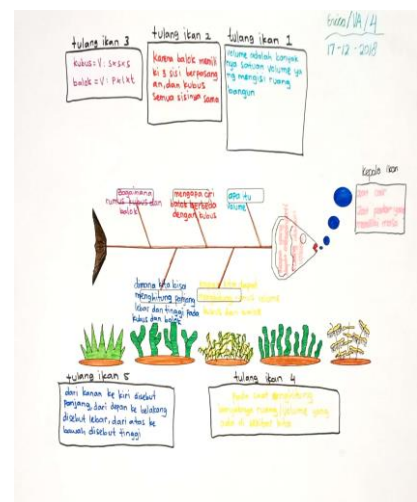 Erina/VA/4
17-12-2018
tulang ikan 3
kubus = V: s×s×s
balok = V: P×l×t
tulang ikan 2
karena balok memili
ki 3 sisi berpasang
an, dan kubus
semua sisinya sama
tulang ikan 1
volume adalah banyak
nya satuan volume ya
ng mengisi ruang
bangun
kepala ikan
Bagaimana
rumus kubus dan
balok
mengapa ciri
balok berbeda
dengan kubus
apa itu
volume
dimana kita bisa
menghitung panjang
lebar dan tinggi pada
kubus dan balok
tulang ikan 5
dari kanan ke kiri disebut
panjang, dari depan ke belakang
disebut lebar, dari atas ke
bawah disebut tinggi
tulang ikan 4
pada saat menghitung
banyaknya ruang/volume yang
ada di sekitar kita